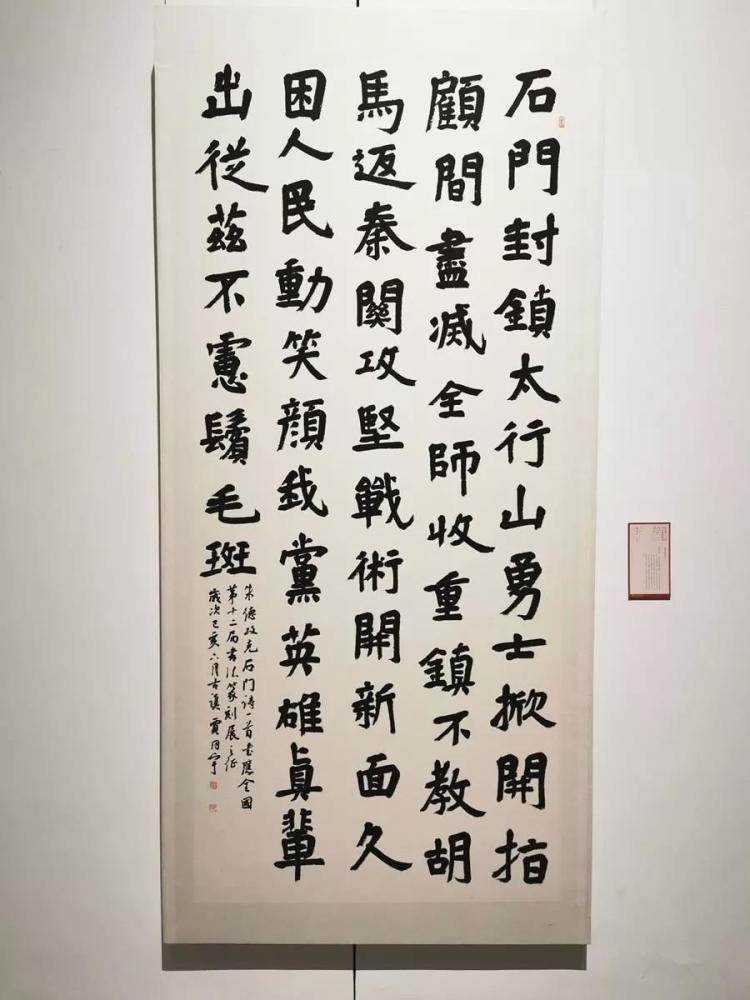 石門封鎖太行山勇士掀開指
顧間盡滅全師收重鎮不教胡
馬返秦關攻堅戰術開新面久
困人民動笑顏我黨英雄真輩
出從茲不慮鬢毛斑
朱德攻克石门诗一首書應全國
第十二届書法篆刻展之征
歲次己亥六月古滇